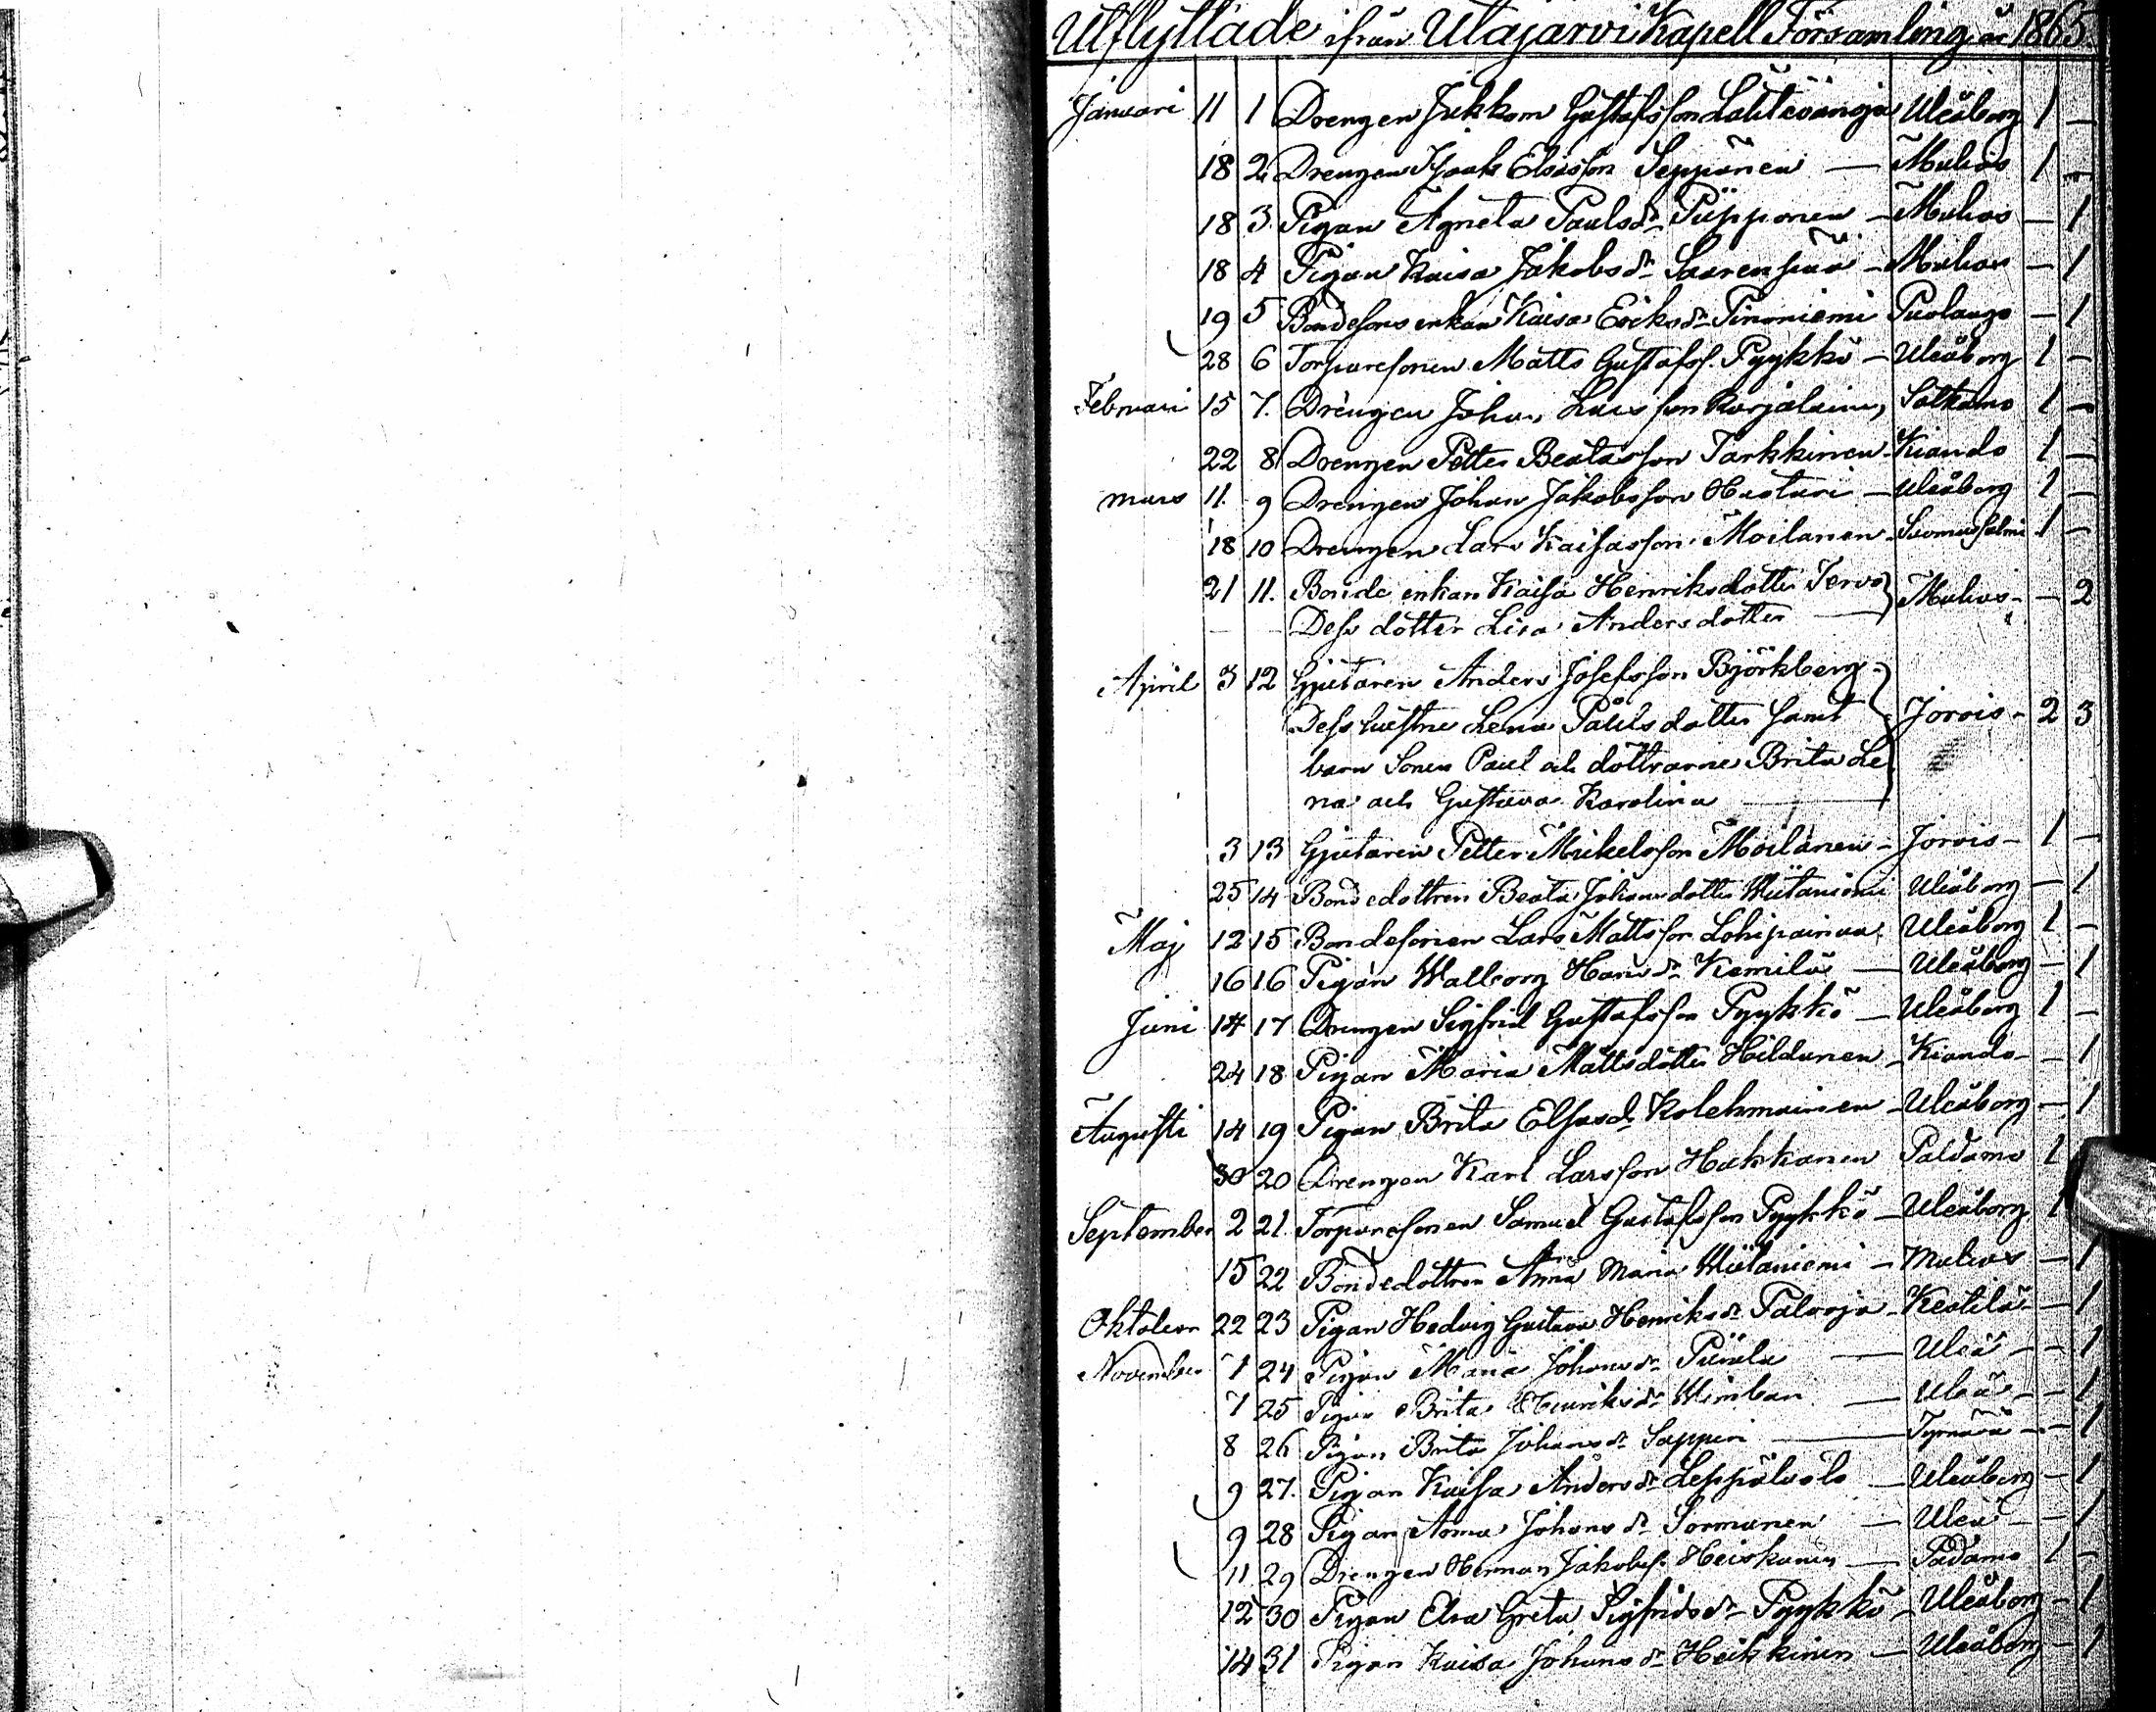 Utflyttade ifrån Utajärvi Kapell Församling år 1865.
Januari 11 1 Drengen Gustafsson Uleåborg 1 —
18 2 Drengen Isaak Elsasson Seppänen — Muhos 1 —
18 3. Pigan Agneta Paulsdr Piipponen — Muhos — 1
18 4 Pigan Kaisa Jakobsdr Saarenpää — Muhos — 1
19 5 Bondesons enkan Kaisa Ericksdr Puolango — 1
28 6 Torparesonen Matts Gustafss. Pyykkö — Uleåborg 1 —
Februari 15 7. Drengen Johan Larsson Karjalainen, Sotkamo 1 —
22 8 Drengen Petter Beatasson Tarkkinen Kiando 1 —
mars 11. 9 Drengen Johan Jakobsson — Uleåborg 1 —
18 10 Drengen Lars Kaisasson Moilanen Suomusalmi 1 —
21 11. Bonde enkan Kaisa Henriksdotter Tervo } Muhos — — 2
Dess dotter Lisa Andersdotter —
April 3 12 Gjutaren Anders Josefsson Björkberg
Dess hustru Lena Paulsdotter samt } Jorois — 2 3
barn Sonen Paul och döttrarne Brita Le
na och Gustava Karolina —
3 13 Gjutaren Petter Mickelsson Moilanen — Jorois — 1 —
25 14 Bondedottren Beata Johansdotter Niitaniemi Uleåborg — 1
Maj 12 15 Bondesonen Lars Mattsson Uleåborg 1 —
16 16 Pigan Walborg Hansdr Kemilä — Uleåborg — 1
Juni 14 17 Drengen Sigfrid Gustafsson Pyykkö — Uleåborg 1 —
24 18 Pigan Maria Mattsdotter Hildunen — Kiando — — 1
Augusti 14 19 Pigan Brita Elsasdr Kolehmainen — Uleåborg — 1
30 20 Drengen Karl Larsson Hakkanen Paldamo 1
September 2 21. Torparesonen Samuel Gustafsson Pyykkö — Uleåborg 1
15 22 Bondedottren Anna Maria Niitaniemi — Muhos — 1
Oktober 22 23 Pigan Hedvig Gustava Henriksdr — Kestilä — — 1
November 7 24 Pigan Maria Johansdr — Uleå — — 1
7 25 Pigan Brita Henriksdr — Uleå — — 1
8 26 Pigan Brita Johansdr — Tyrnävä — — 1
9 27. Pigan Kaisa Andersdr — Uleåborg — 1
9 28 Pigan Anna Johansdr Sormunen — Uleå — — 1
11 29 Drengen Herman Jakobss. Heiskanen — Paldamo 1 —
12 30 Pigan Elsa Greta Sigfridsdr Pyykkö — Uleåborg — 1
14 31 Pigan Kaisa Johansdr Heikkinen — Uleåborg — 1